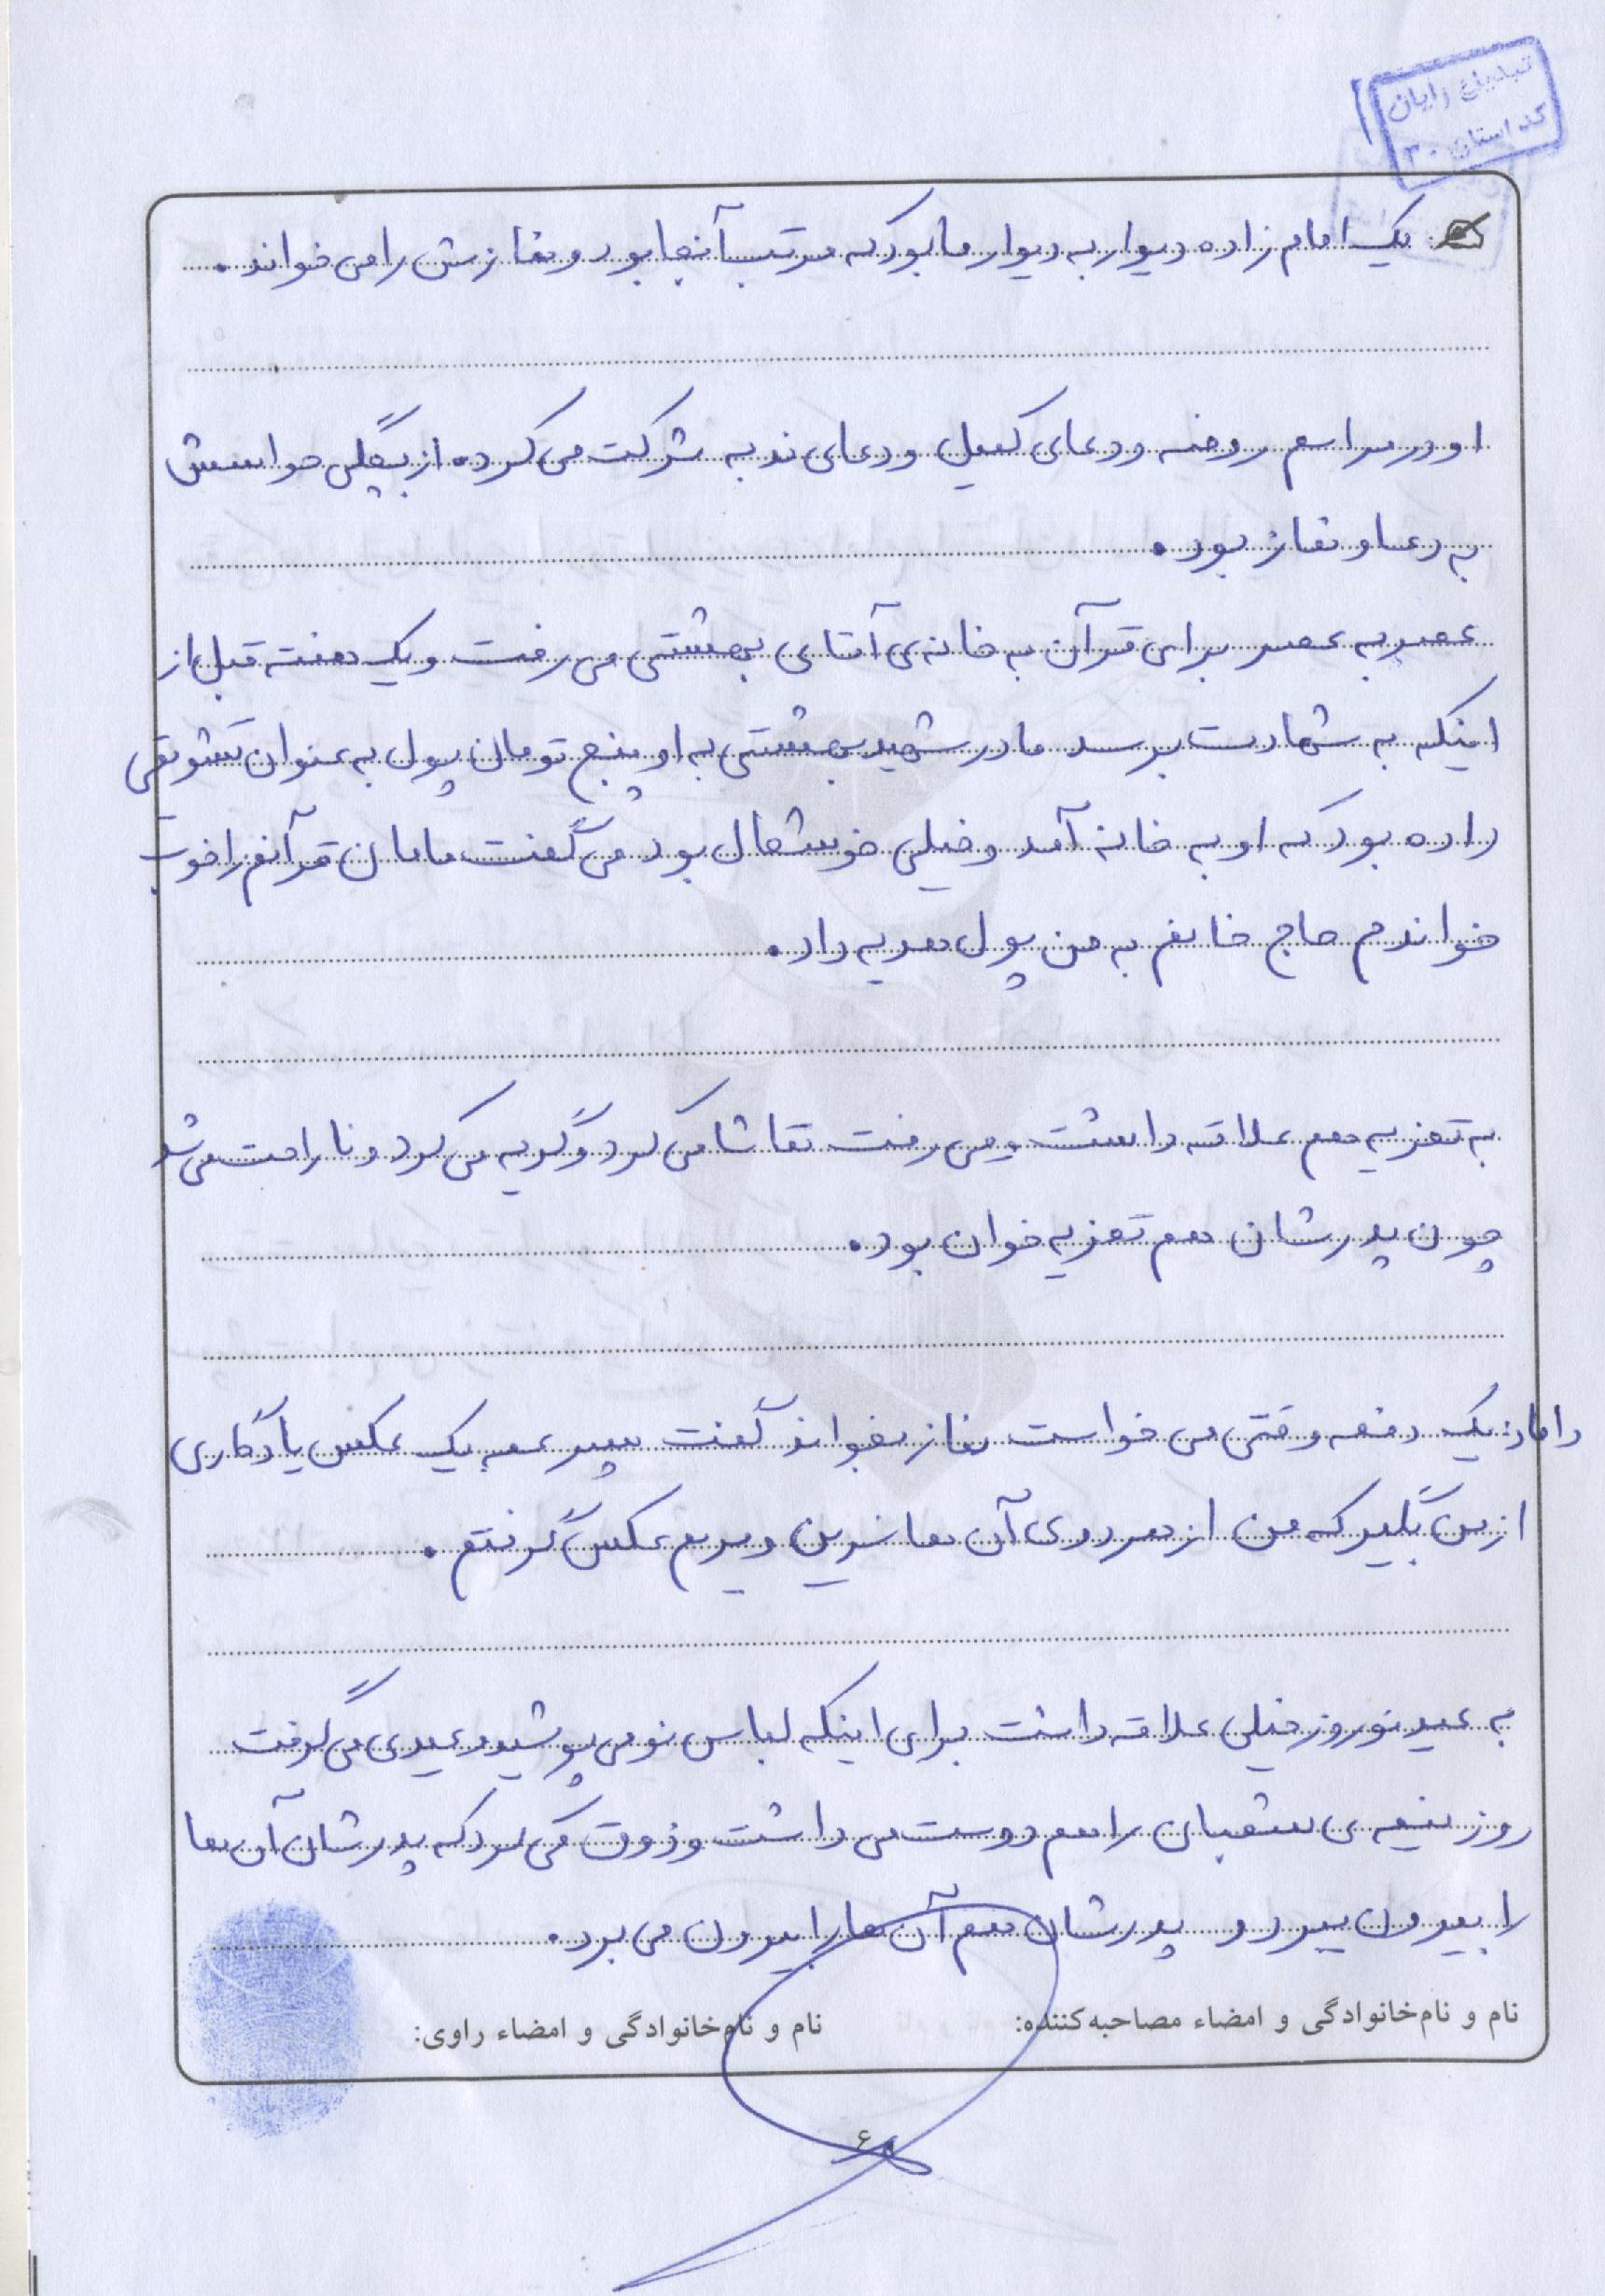 تبدیلغ رایان
کد استان ۳۰
یک امام زاده دیوار به دیوار ما بود که مرتب آنجا بود و نمازش را می خواند.
او در مراسم روضه و دعای کمیل و دعای ندبه شرکت می کرد. از بچگی حواسش
به دعا و نماز بود.
عصر به عصر برای قرآن به خانه ی آقای بهشتی می رفت و یک هفته قبل از
اینکه به شهادت برسد مادر شهید بهشتی به او پنج تومان پول به عنوان تشویقی
داده بود که او به خانه آمد و خیلی خوشحال بود می گفت مامان قرآنم را خوب
خواندم حاج خانم به من پول هدیه داد.
به تعزیه هم علاقه داشت و می رفت تماشا می کرد و گریه می کرد و ناراحت می شد
چون پدرشان هم تعزیه خوان بود.
داماد: یک دفعه وقتی می خواست نماز بخواند گفت پسر عمه یک عکس یادگاری
از من بگیر که من از هر دوی آن ها نسرین و مریم عکس گرفتم.
به عید نوروز خیلی علاقه داشت برای اینکه لباس نو می پوشید و عیدی می گرفت
روز نیمه ی شعبان را هم دوست می داشت و ذوق می کرد که پدرشان آن ها
را بیرون ببرد و پدرشان هم آن ها را بیرون می برد.
نام و نام‌خانوادگی و امضاء مصاحبه‌کننده:
نام و نام‌خانوادگی و امضاء راوی:
۶